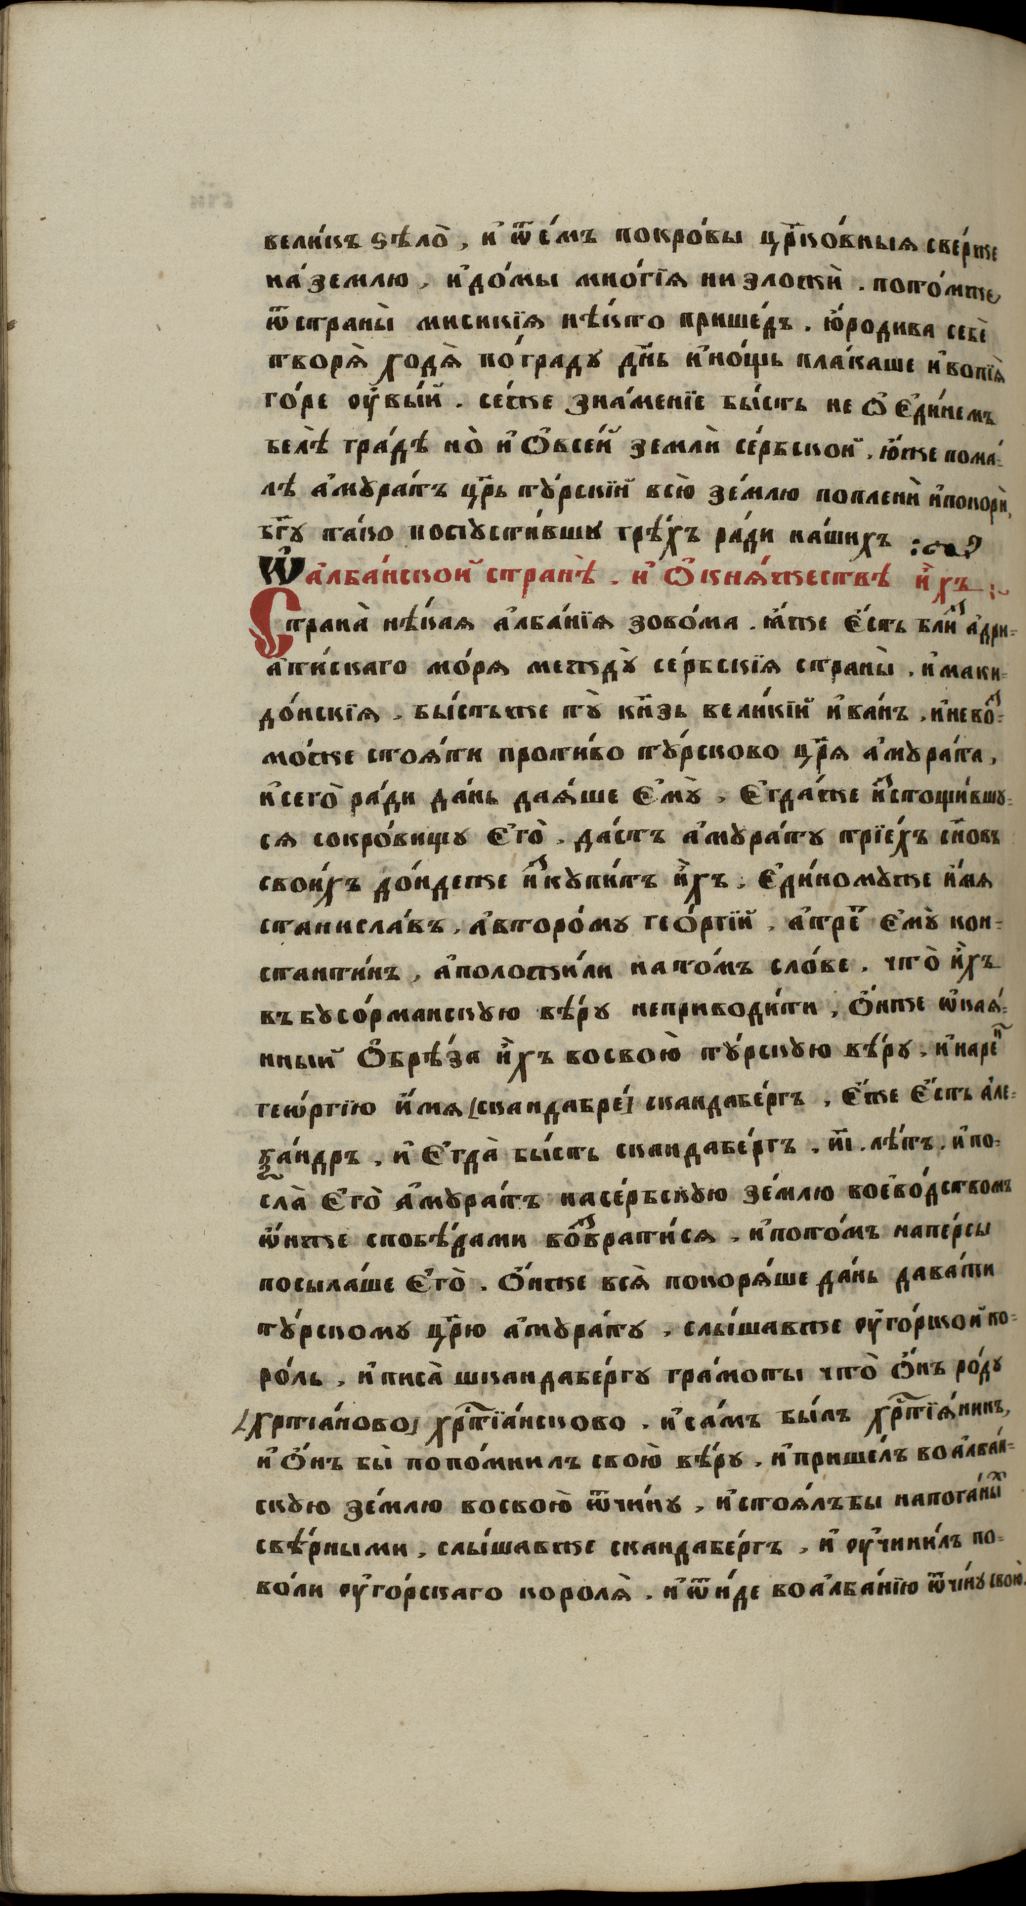 вели́къ ѕѣло̀, и҆ ѿе́мъ покро́вы цр҃ко́вныѧ све́рже
на́ землю, и҆до́мы мно́гїѧ ни зложѝ. пото́мже
ѿ страны̀ мисикїѧ нѣ́кто прише́дъ. ю҆́родива себѐ
творѧ̀ ходѧ̀ по́ граду дн҃ь и҆но́щь пла́каше и҆вопїѧ̀
го́ре оу҆вы́й. се́же зна́менїе бы́сть не ѻ҆ є҆ди́немъ
бе́лѣ гра́дѣ но̀ и҆ ѻ҆всей землѝ се́рбской. ю҆́же пома́-
лѣ а҆мꙋра́тъ цр҃ь тꙋ́рскїй всю̀ зе́млю поплени́ и҆покорѝ,
бг҃ꙋ та́ко попꙋсти́вшꙋ грѣ́хъ ра́ди на́шихъ :~
Ѡ҆ а҆лба́нской странѣ̀. и҆ ѻ҆ кнѧ́жествѣ и҆́хъ :~
Страна̀ нѣ́каѧ а҆лба́нїѧ зово́ма. ꙗ҆́же є҆́сть бли́з а҆дри-
ати́скаго мо́рѧ междꙋ̀ се́рбскїѧ страны̀. и҆маки-
до́нскїѧ. бы́стьже тꙋ̀ кн҃зь вели́кїй и҆ва́нъ, и҆нево́з-
мо́же стоѧ́ти проти́во тꙋ́рсково цр҃ѧ̀ а҆мꙋра́та,
и҆сего̀ ра́ди да́нь даѧ́ше є҆мꙋ̀. є҆гда́же и҆стощи́вшꙋ-
сѧ сокро́вищꙋ є҆го̀. да́стъ а҆мꙋра́тꙋ трїе́хъ сн҃овъ
свои́хъ до́ндеже и҆скꙋ́питъ и҆́хъ. є҆ди́номꙋже и҆́мѧ
станисла́въ, а҆второ́мꙋ гео́ргїй. а҆тре́ емꙋ̀ кон-
станти́нъ, а҆положи́ли на то́мъ сло́ве. что̀ и҆́хъ
въ бꙋсо́рманскꙋю вѣ́рꙋ неприводи́ти, ѻ҆́нже ѡ҆каѧ́-
нный ѻ҆брѣ́за и҆́хъ восвою̀ тꙋ́рскꙋю вѣ́рꙋ. и҆наре́ч
геѡ́ргїю и҆́мѧ [скандабре́] скандабе́ргъ, є҆́же є҆́сть а҆ле-
ѯа́ндръ. и҆ є҆гда̀ бы́сть скандабе́ргъ. и҃і. лѣ́тъ. и҆по-
сла̀ є҆го̀ а҆мꙋра́тъ насе́рбскꙋю зе́млю воево́дствомъ
ѡ҆́нже спобѣ́дами возврати́сѧ. и҆пото́мъ напе́рсы
посыла́ше є҆го̀. ѻ҆́нже всѧ̀ покорѧ́ше да́нь дава́ти
тꙋ́рскомꙋ цр҃ю̀ а҆мꙋра́тꙋ, слы́шавже оу҆го́рской ко-
ро́ль, и҆писа̀ шкандабе́ргꙋ гра́моты что̀ ѻ҆́нъ ро́дꙋ
[хртїа́ново] хрⷭ҇тїа́нсково. и҆са́мъ бы́лъ хрⷭ҇тїѧ́нинъ,
и҆ ѻ҆́нъ бы̀ попо́мнилъ свою̀ вѣ́рꙋ. и҆прише́лъ воалба́н-
скꙋю зе́млю восвою̀ ѿчи́нꙋ, и҆стоѧ́лъбы напога́ных
свѣ́рными. слы́шавже скандабе́ргъ, и҆ оу҆чини́лъ по-
во́ли оу҆го́рскаго королѧ̀. и҆ ѿи́де воалба́нїю ѿчи́нꙋ свою̀.